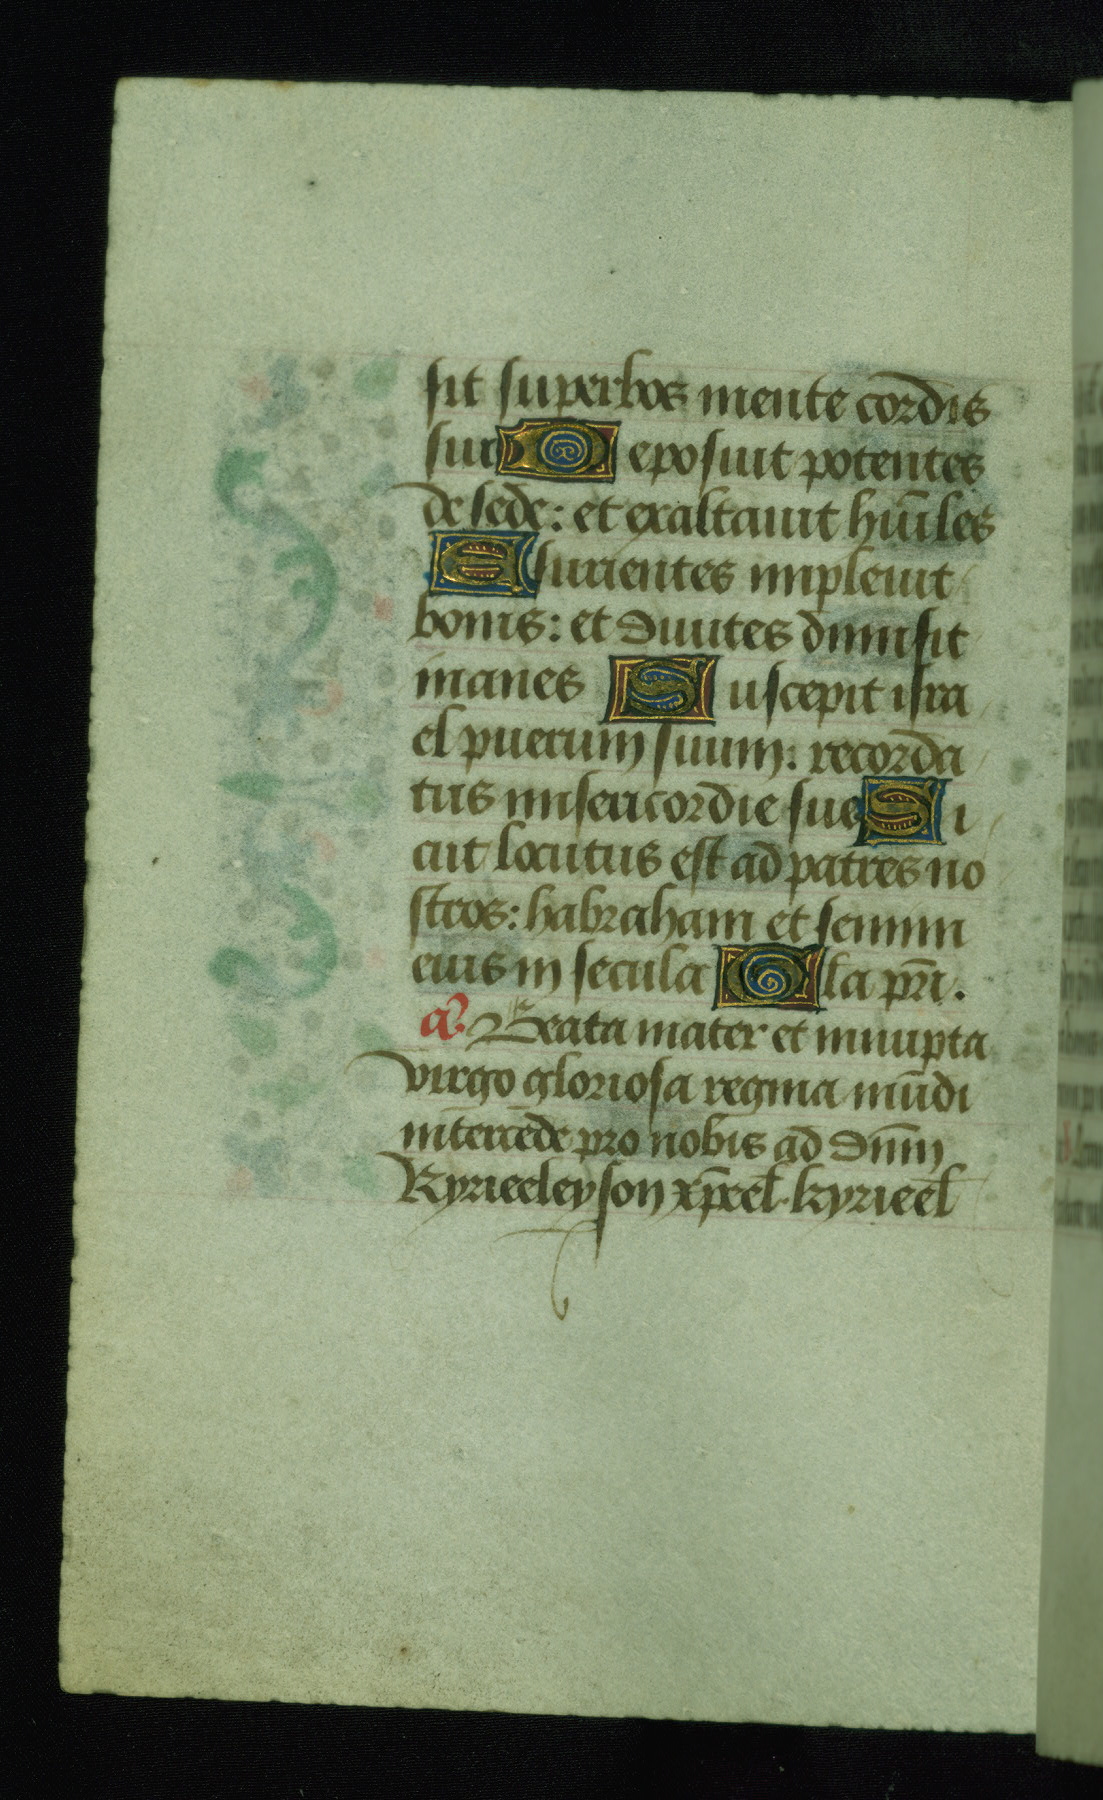 sit superbos mente cordis
sui Deposuit potentes
de sede: et exaltauit hūiles
Esurientes impleuit
bonis: et diuites dimisit
inanes Suscepit isra
el puerum suum: recorda
tus misericordie sue Si
cut locutus est ad patres no
stros: habraham et semini
eius in secula Gla pr̄i.
a. Beata mater et innupta
virgo gloriosa regina mūdi
intercēde pro nobis ad dn̄m
Kyrieeleyson xp̄eel. kyrieel